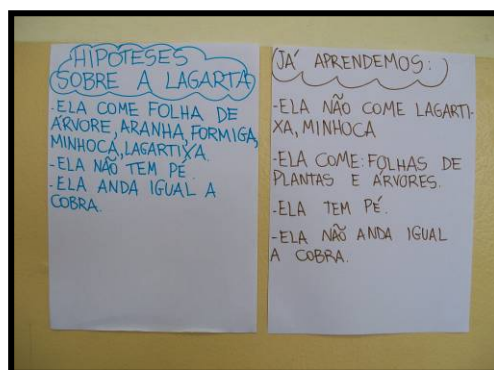 HIPÓTESES
SOBRE A LAGARTA
-ELA COME FOLHA DE
ÁRVORE, ARANHA, FORMIGA,
MINHOCA, LAGARTIXA.
-ELA NÃO TEM PÉ.
-ELA ANDA IGUAL A
COBRA.
JÁ APRENDEMOS:
-ELA NÃO COME LAGARTI-
XA, MINHOCA
-ELA COME: FOLHAS DE
PLANTAS E ÁRVORES.
-ELA TEM PÉ.
-ELA NÃO ANDA IGUAL
A COBRA.